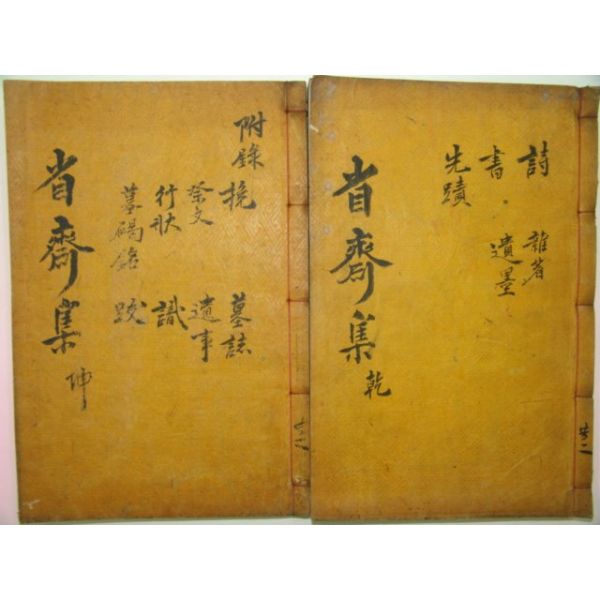 共二
詩 雜著
書 遺墨
先蹟
省齋集 乾
共二
附錄 挽 墓誌
祭文 遺事
行狀 識
墓碣銘 跋
省齋集 坤